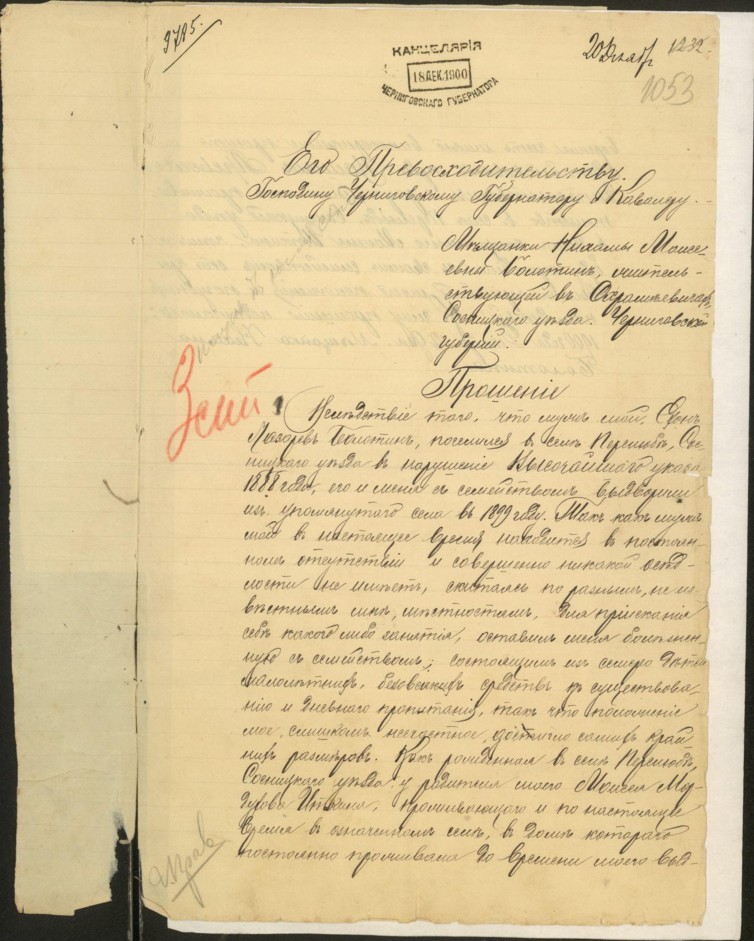 9785.
КАНЦЕЛЯРІЯ
18 ДЕК. 1900
ЧЕРНИГОВСКАГО ГУБЕРНАТОРА
20 Декабр
1232.
1053
Его Превосходительству.
Господину Черниговскому Губернатору и Кавалеру.
Мѣщанки Нихамы Моисе-
евны Болотинъ, житель-
ствующей въ
Сосницкаго уѣзда. Черниговской
губерніи.
Прошеніе
Вслѣдствіе того, что мужъ мой,
Лазаревъ Болотинъ, поселился въ селѣ Перелюбъ, Сос-
ницкаго уѣзда въ нарушеніе Высочайшаго указа
188 года, его и меня съ семействомъ выдворили
изъ упомянутаго села въ 1899 году. Такъ какъ мужъ
мой въ настоящее время находится въ постоян-
номъ отсутствіи и совершенно никакой осѣд-
лости не имѣетъ, скитаясь по разнымъ, не из-
вѣстнымъ мнѣ, мѣстностямъ, для пріисканія
себѣ какого либо занятія, оставилъ меня болѣзнен-
ную съ семействомъ, состоящимъ изъ семеро дѣтей
малолѣтнихъ, безовсякихъ средствъ къ существова-
нію и дневнаго пропитанія, такъ что положеніе
мое, слишкомъ несчастное, достигло самихъ край-
нихъ размѣровъ. Какъ рожденная въ селѣ Перелюбъ,
Сосницкаго уѣзда у родителя моего Моисея Мор-
духова, проживающаго и по настоящее
время въ означенномъ селѣ, въ домѣ котораго
постоянно проживала до времени моего выд-